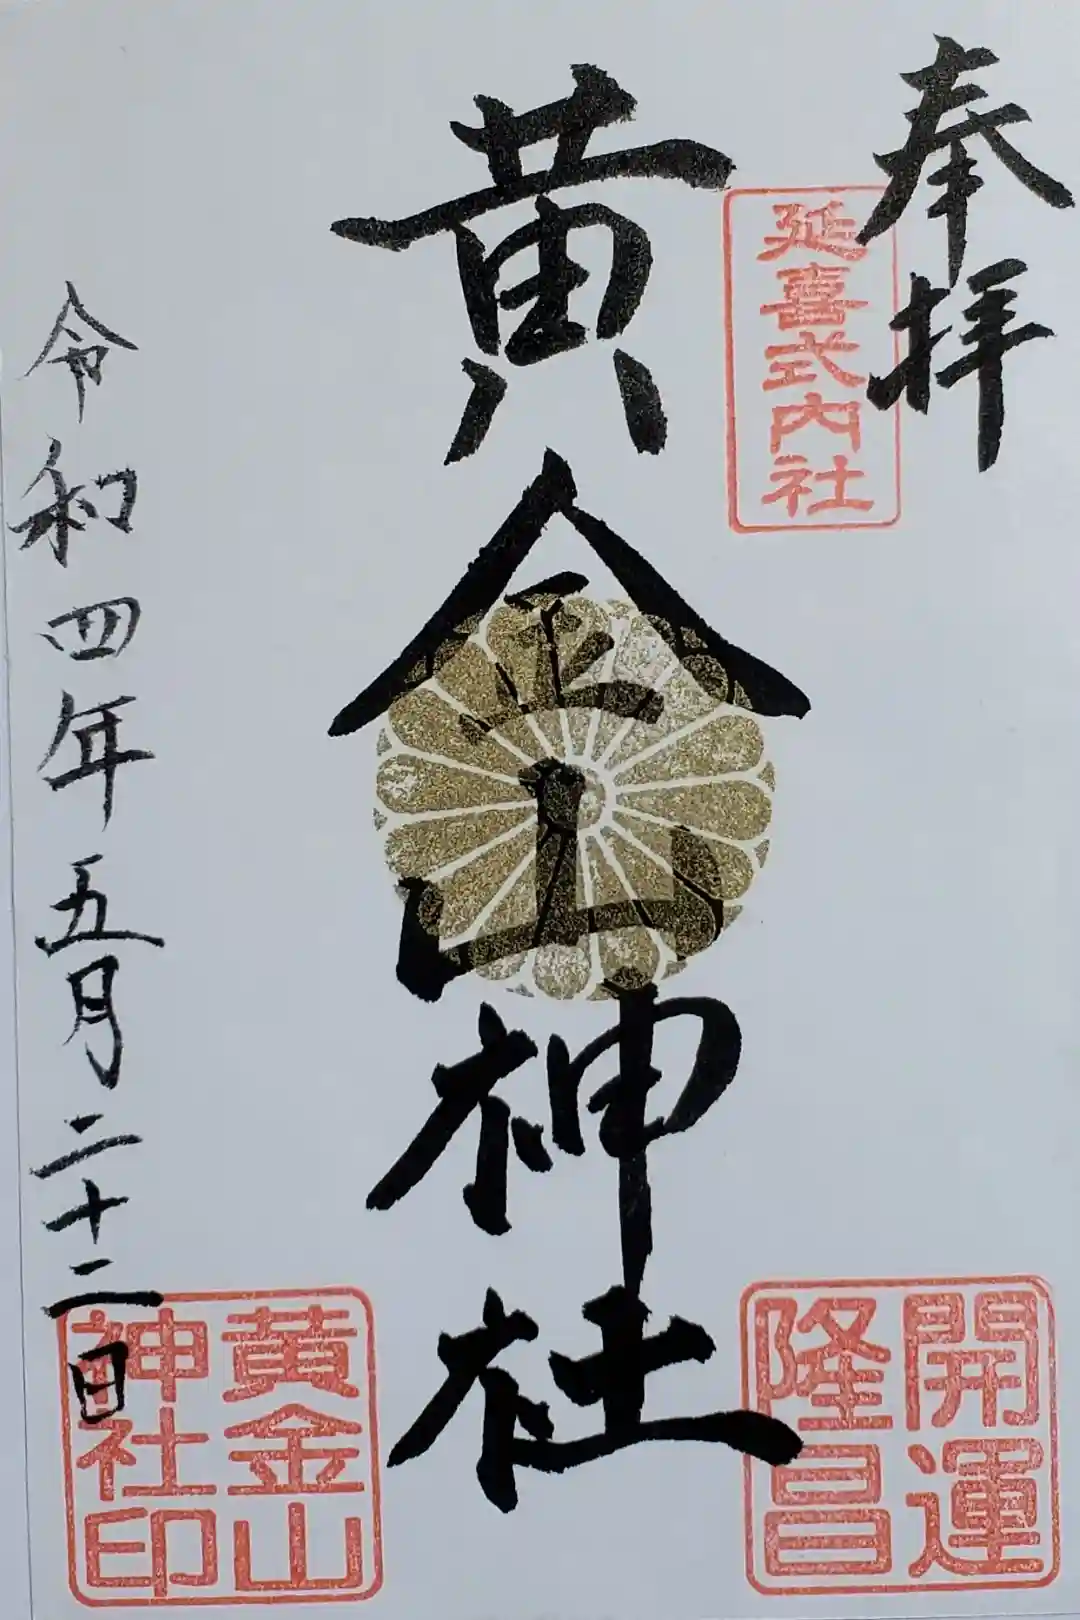 奉拝
延喜式内社
黄金山神社
開運
隆昌
令和四年五月二十二日
黄金山
神社印